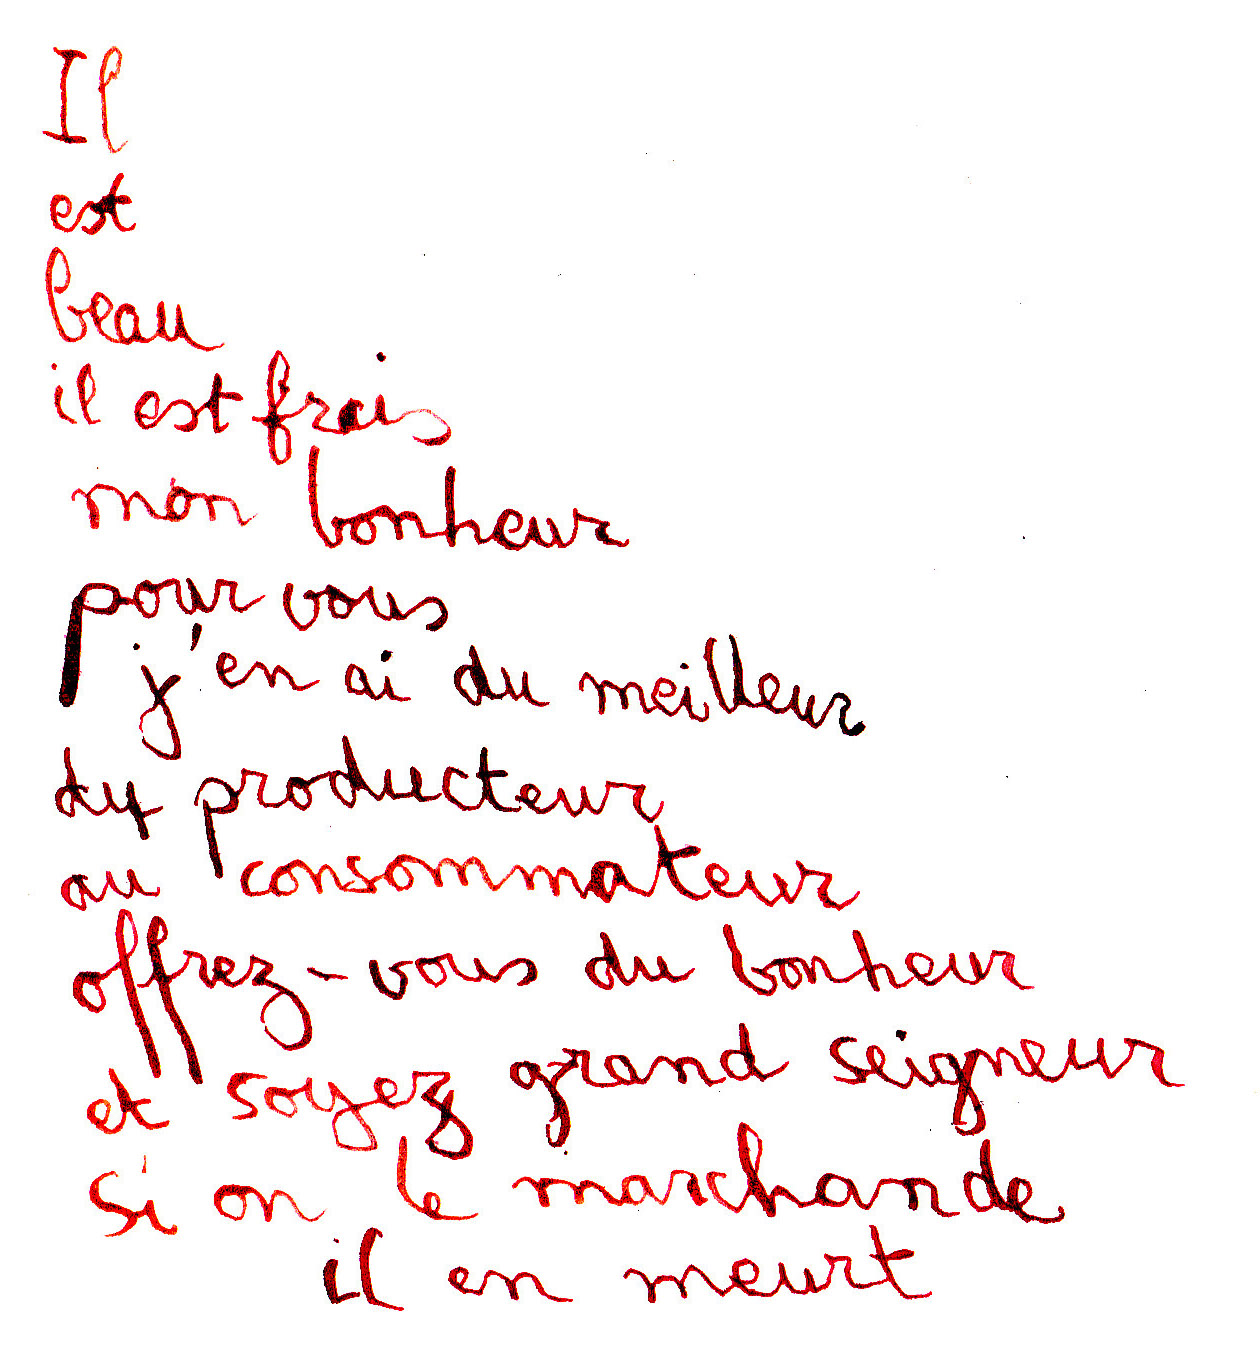 Il
est
beau
il est frais
mon bonheur
pour vous
j'en ai du meilleur
du producteur
au consommateur
offrez-vous du bonheur
et soyez grand seigneur
si on le marchande
il en meurt